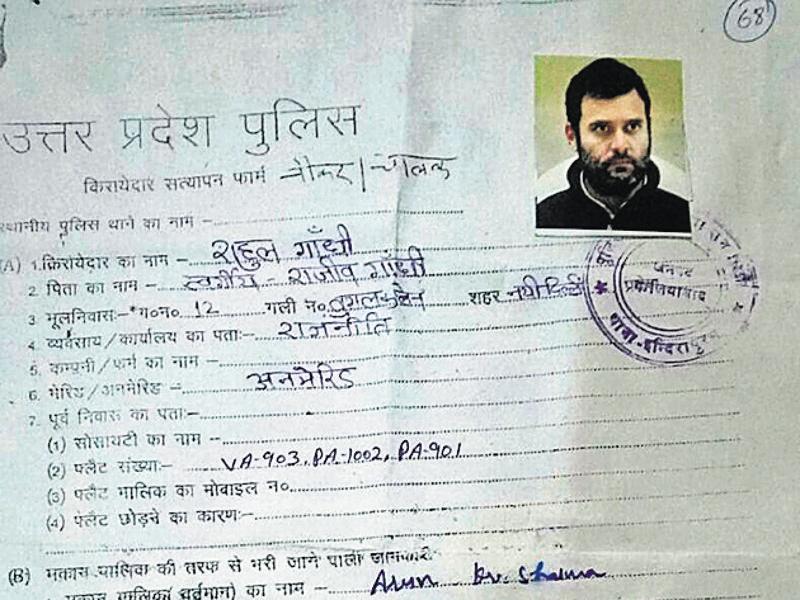 68
उत्तर प्रदेश पुलिस
किरायेदार सत्यापन फार्म नौकर / चालक
स्थानीय पुलिस थाने का नाम -
(A) 1. किरायेदार का नाम - राहुल गाँधी
2. पिता का नाम - स्वर्गीय - राजीव गाँधी
3. मूलनिवास:- म०न० 12 गली न० तुगलक लेन शहर नयी दिल्ली
4. व्यवसाय/कार्यालय का पता:- राजनीति
5. कम्पनी/फर्म का नाम -
6. मेरिड/अनमेरिड - अनमेरिड
7. पूर्व निवास का पता:-
(1) सोसायटी का नाम -
(2) फ्लैट संख्या:- VA-903, PA-1002, PA-901
(3) फ्लैट मालिक का मोबाइल न०
(4) फ्लैट छोड़ने का कारण:-
(B) मकान मालिक की तरफ से भरी जाने वाली जानकारी:
मकान मालिक (वर्तमान) का नाम - Arun Kr. Sharma